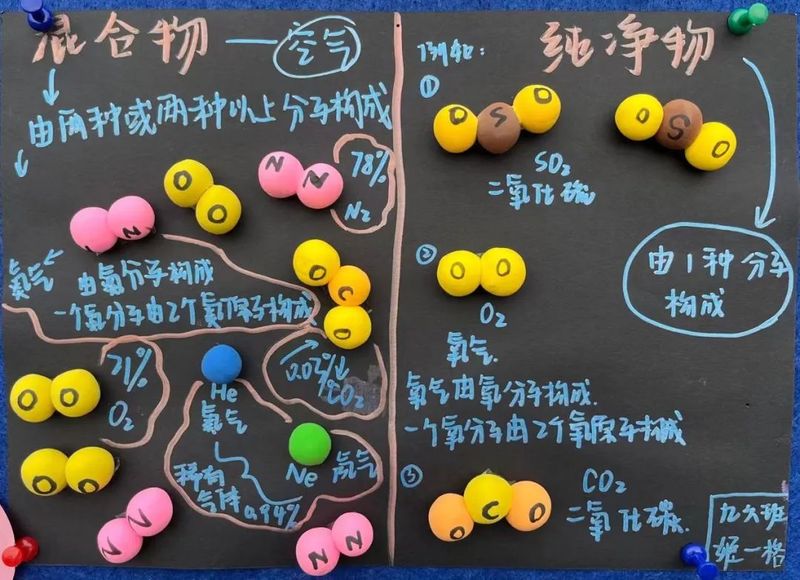 混合物 — 空气
由两种或两种以上分子构成
N N
78%
N₂
O O
N
氮气
由氮分子构成
一个氮分子由2个氮原子构成
O C O
CO₂
O O
21%
O₂
He
氦气
O O
Ne 氖气
稀有
气体 0.94%
N N
N N
例如:
纯净物
①
O S O
O S O
SO₂
二氧化硫
由1种分子
构成
②
O O
O₂
氧气.
氧气由氧分子构成.
一个氧分子由2个氧原子构成
③
O C O
CO₂
二氧化碳.
九六班
姬一格